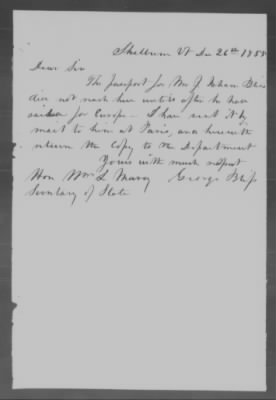 Shelburn Vt Dec 26th 1855
Dear Sir
The passport for Mr J Isham Bliss
did not reach here until after he had
sailed for Europe – I have sent it by
mail to him at Paris, and herewith
return the Copy to the Department
Yours with much respect
George Bliss
Hon Wm L Marcy
Secretary of State